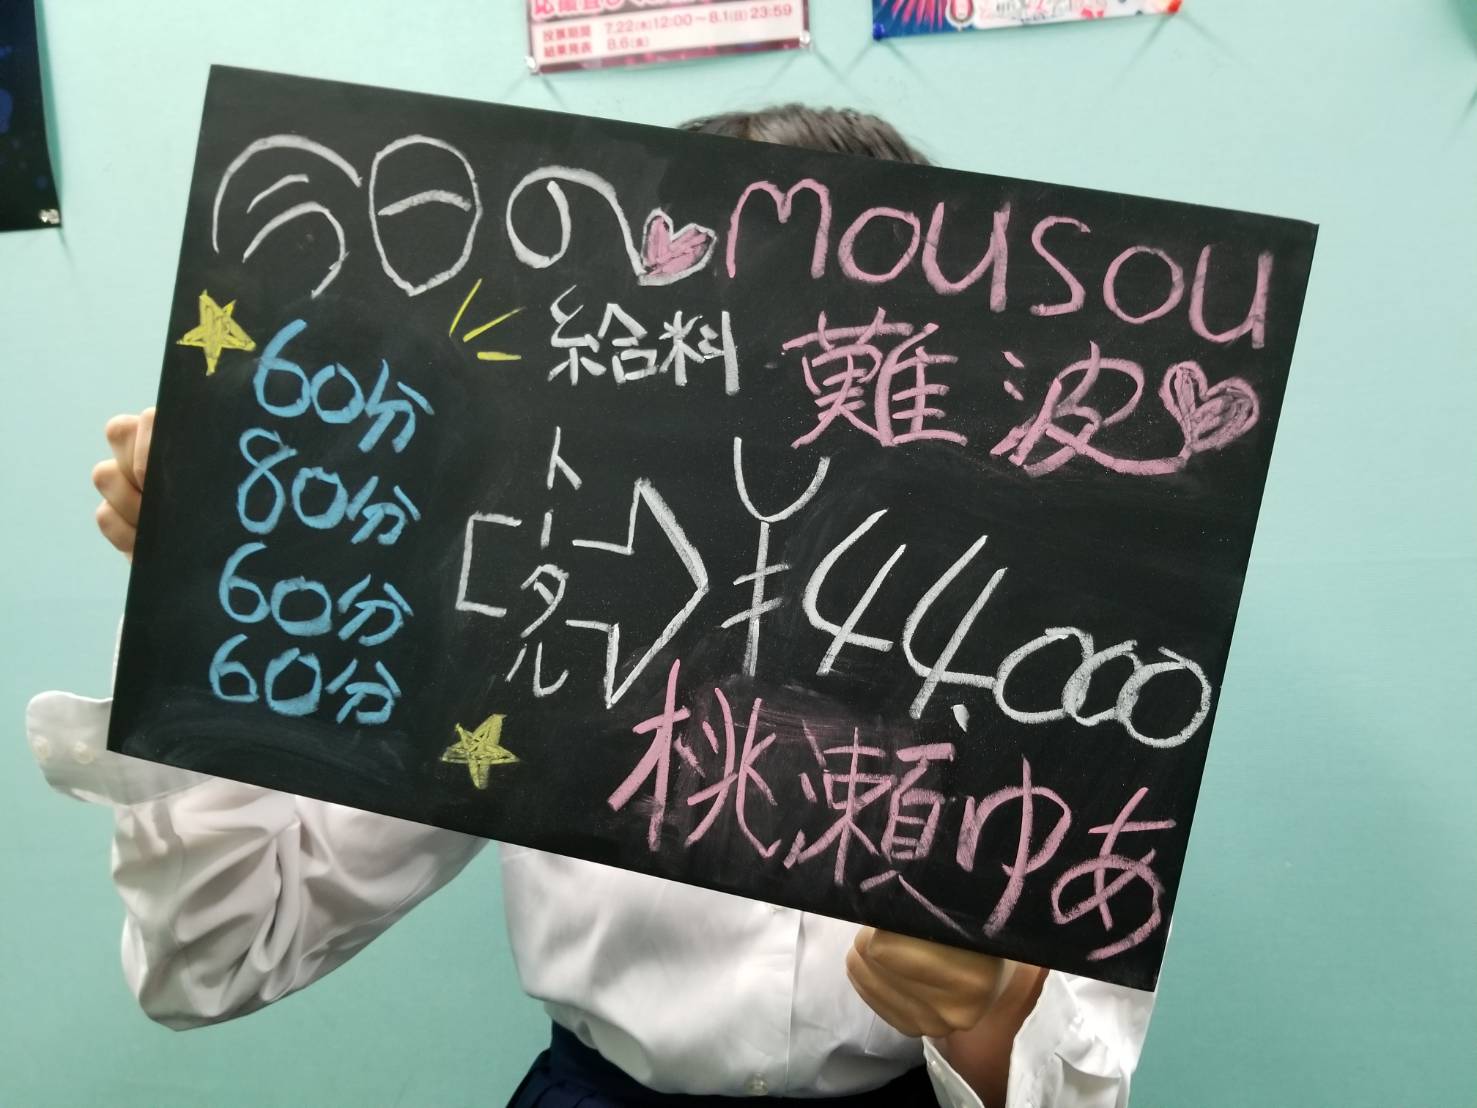 投票期間 7.22(木)12:00～8.1(日)23:59
結果発表 8.6(金)
今日の mousou
給料 難波
60分
80分
60分
60分
トータル
¥44,000
桃瀬ゆあ